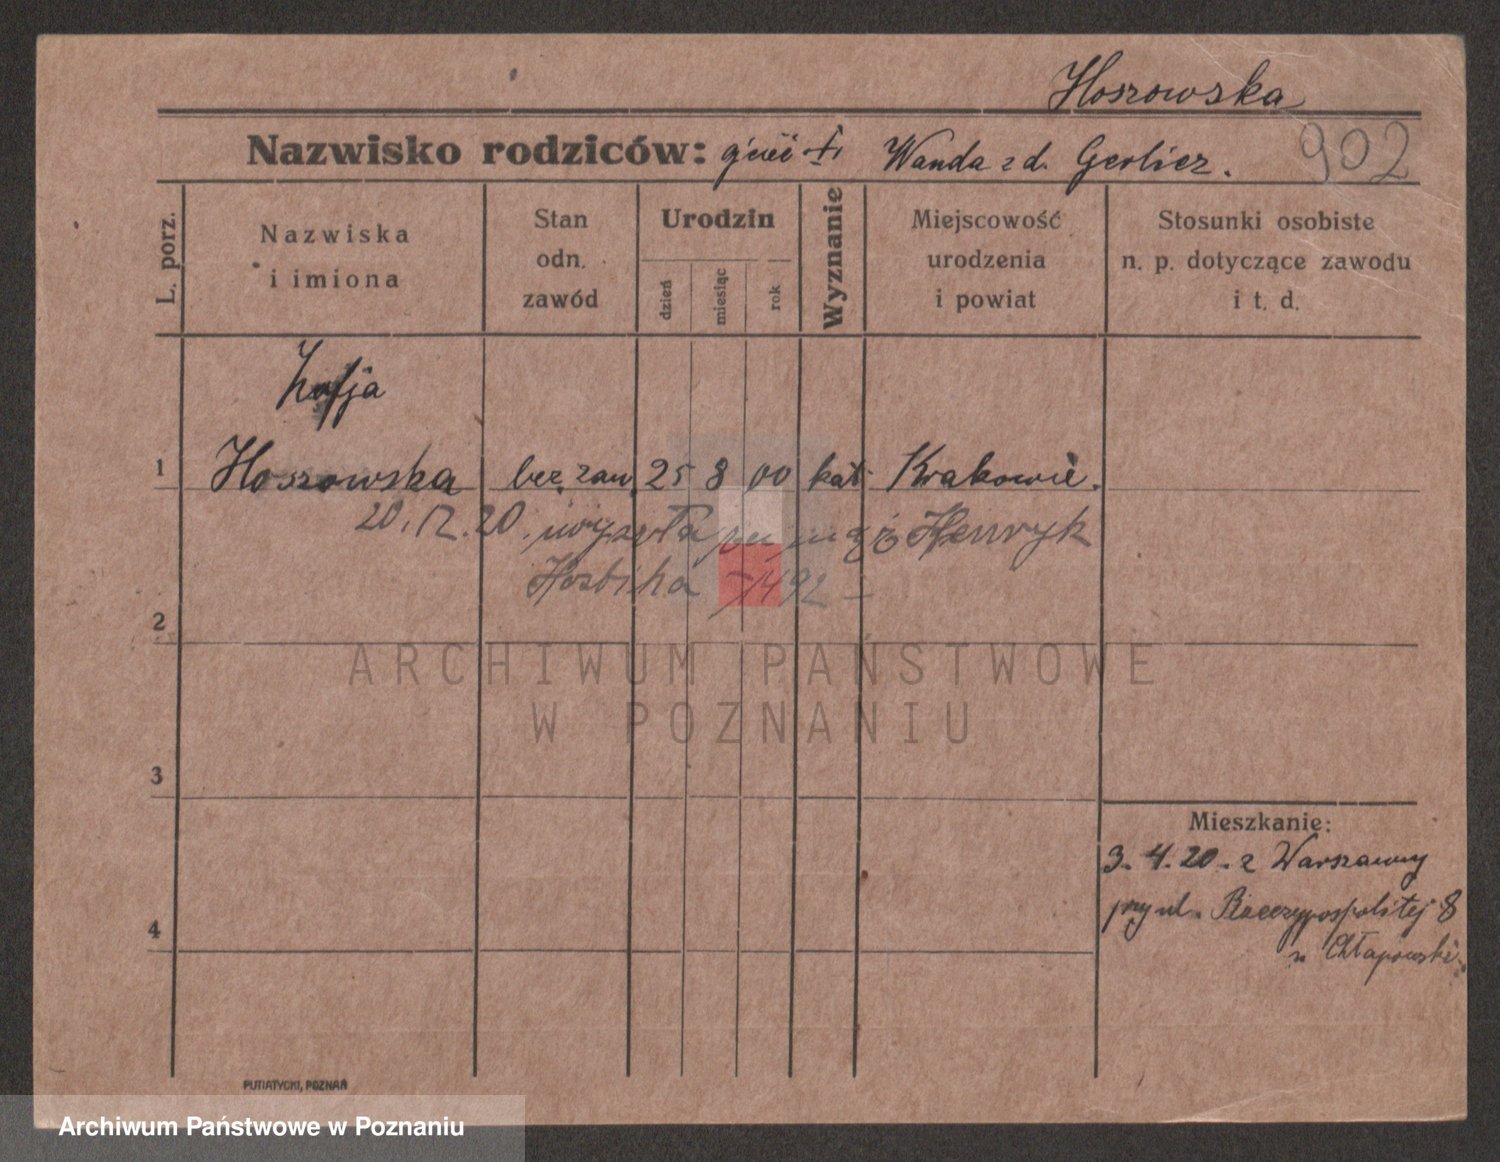 Hoszowska
Nazwisko rodziców: Wanda z d. Gerlicz. 902
L. porz.
Nazwiska
i imiona
Stan
odn.
zawód
Urodzin
dzień
miesiąc
rok
Wyznanie
Miejscowość
urodzenia
i powiat
Stosunki osobiste
n. p. dotyczące zawodu
i t. d.
Zofja
1 Hoszowska bez zaw. 25 8 00 kat. Krakowie.
20.12.20. wyszła za mąż Henryk
2
ARCHIWUM PAŃSTWOWE
W POZNANIU
3
Mieszkanie:
3.4.20. z Warszawy
przy ul. Rzeczypospolitej 8
Chłapowski
4
PUTIATYCKI, POZNAŃ
Archiwum Państwowe w Poznaniu